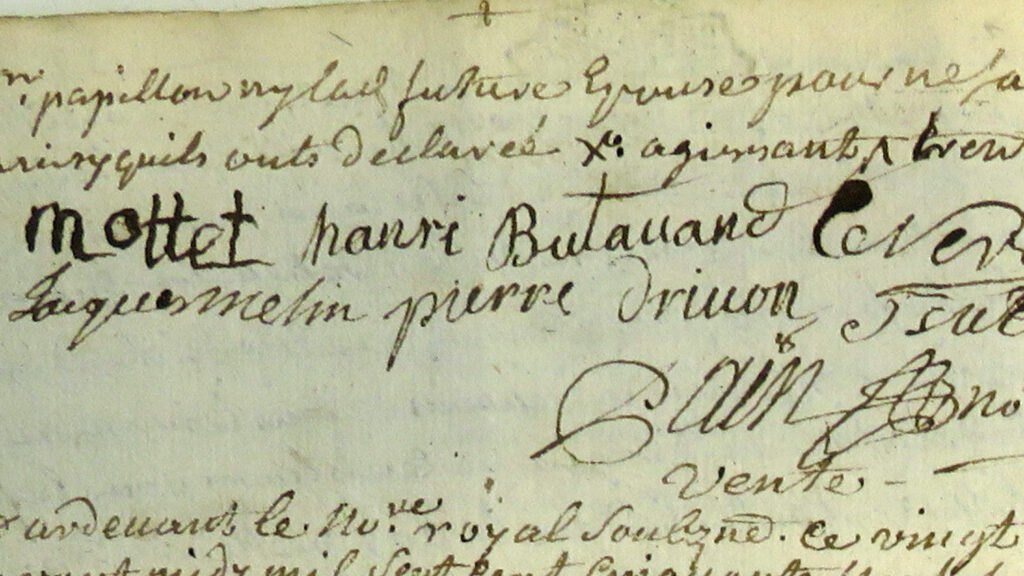 papillon ny lad future Epouse pour ne sa
quils onts declareé Xe. agissant
mottet hanri Butauand
Jacques melin pierre Driuon
Pain no
Vente
Pardeuant le No.re royal Soubzné. Ce vingt
midy mil Sept Cent Cinquante